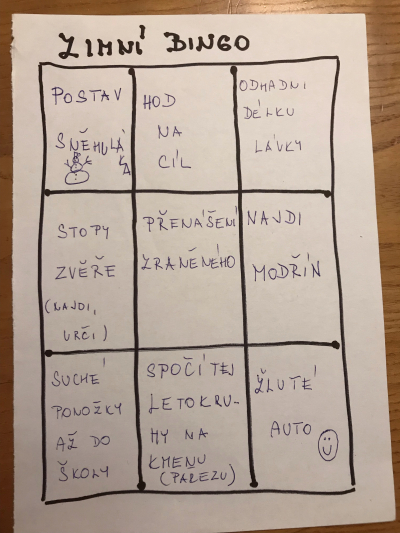 ZIMNÍ BINGO
POSTAV
SNĚHULÁ
KA
HOD
NA
CÍL
ODHADNI
DÉLKU
LÁVKY
STOPY
ZVĚŘE
(NAJDI,
URČI)
PŘENÁŠENÍ
ZRANĚNÉHO
NAJDI
MODŘÍN
SUCHÉ
PONOŽKY
AŽ DO
ŠKOLY
SPOČÍTEJ
LETOKRU-
HY NA
KMENU
(PAŘEZU)
ŽLUTÉ
AUTO